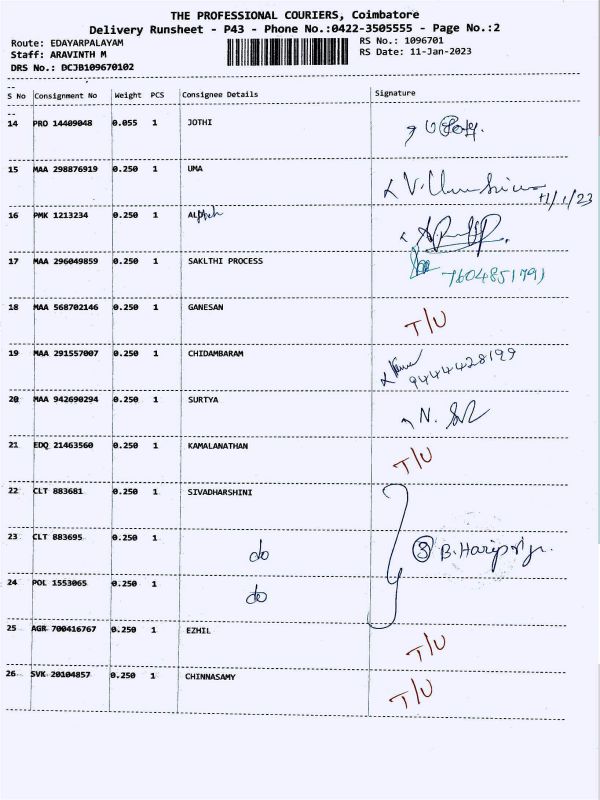 THE PROFESSIONAL COURIERS, Coimbatore
Delivery Runsheet - P43 - Phone No.:0422-3505555 - Page No.:2
Route: EDAYARPALAYAM RS No.: 1096701
Staff: ARAVINTH M RS Date: 11-Jan-2023
DRS No.: DCJB109670102
S No Consignment No Weight PCS Consignee Details Signature
14 PRO 14409048 0.055 1 JOTHI
15 MAA 298876919 0.250 1 UMA
11/1/23
16 PMK 1213234 0.250 1
17 MAA 296049859 0.250 1 SAKLTHI PROCESS
7604851791
18 MAA 568702146 0.250 1 GANESAN T/U
19 MAA 291557007 0.250 1 CHIDAMBARAM
9444428199
20 MAA 942690294 0.250 1 SURTYA N.
21 EDQ 21463560 0.250 1 KAMALANATHAN T/U
22 CLT 883681 0.250 1 SIVADHARSHINI
23 CLT 883695 0.250 1 do 3 B.
24 POL 1553065 0.250 1 do
25 AGR 700416767 0.250 1 EZHIL T/U
26 SVK 20104857 0.250 1 CHINNASAMY T/U